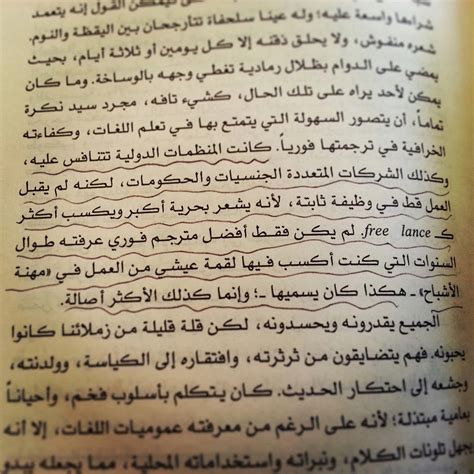 شرابها واسعة عليه؛ وله عينا سلحفاة تتأرجحان بين اليقظة والنوم.
شعره منفوش، ولا يحلق ذقنه إلا كل يومين أو ثلاثة أيام، بحيث
يمضي على الدوام بظلال رمادية تغطي وجهه بالوساخة. وما كان
يمكن لأحد يراه على تلك الحال، كشيء تافه، مجرد سيد نكرة
تماماً، أن يتصور السهولة التي يتمتع بها في تعلم اللغات، وكفاءته
الخرافية في ترجمتها فورياً. كانت المنظمات الدولية تتنافس عليه،
وكذلك الشركات المتعددة الجنسيات والحكومات، لكنه لم يقبل
العمل قط في وظيفة ثابتة، لأنه يشعر بحرية أكبر ويكسب أكثر
كـ free lance. لم يكن فقط أفضل مترجم فوري عرفته طوال
السنوات التي كنت أكسب فيها لقمة عيشي من العمل في «مهنة
الأشباح» ـ هكذا كان يسميها ـ؛ وإنما كذلك الأكثر أصالة.
الجميع يقدرونه ويحسدونه، لكن قلة قليلة من زملائنا كانوا
يحبونه. فهم يتضايقون من ثرثرته، وافتقاره إلى الكياسة، وولدنته،
وجشعه إلى احتكار الحديث. كان يتكلم بأسلوب فخم، وأحياناً
بعامية مبتذلة؛ لأنه على الرغم من معرفته عموميات اللغات، إلا أنه
يجهل تلونات الكلام، ونبراته واستخداماته المحلية، مما يجعله يبدو